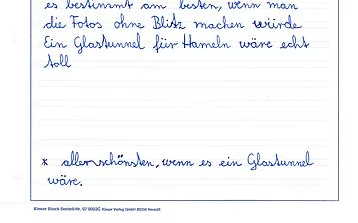 es bestimmt am besten, wenn man
die Fotos ohne Blitz machen würde
Ein Glastunnel für Hameln wäre echt
toll
* allerschönsten, wenn es ein Glastunnel
wäre.
Kieser Block Bestell-Nr. 07 0003C Kieser Verlag GmbH 86356 Neusäß